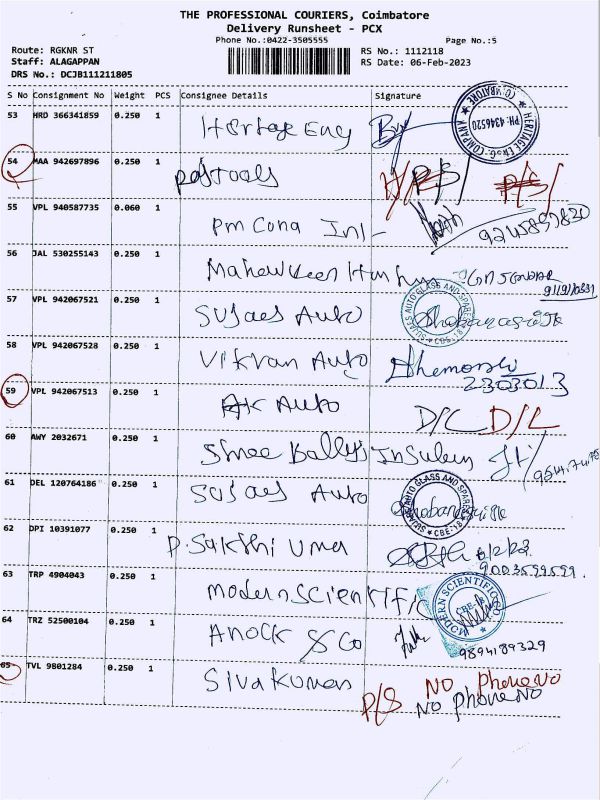 THE PROFESSIONAL COURIERS, Coimbatore
Delivery Runsheet - PCX
Phone No.:0422-3505555 Page No.:5
Route: RGKNR ST RS No.: 1112118
Staff: ALAGAPPAN RS Date: 06-Feb-2023
DRS No.: DCJB111211805
S No Consignment No Weight PCS Consignee Details Signature
53 HRD 366341859 0.250 1
Hertage Eng
HERITAGE COMPANY COIMBATORE PH: 4346520
54 MAA 942697896 0.250 1
P/S P/S
55 VPL 940587735 0.060 1
Pm Cona Inl-
9245897820
56 JAL 530255143 0.250 1
57 VPL 942067521 0.250 1
Sujaes Auto
SUJAES AUTO GLASS AND SPARES
58 VPL 942067528 0.250 1
Vikran Auto
2303013
59 VPL 942067513 0.250 1
AK Auto D/C D/L
60 AWY 2032671 0.250 1
Shree
61 DEL 120764186 0.250 1
Sujaes Auto
AUTO GLASS AND SPARES CBE-18
62 DPI 10391077 0.250 1
P. Sakthi Uma 6/2/23
9003599599
63 TRP 4904043 0.250 1
Modern Scientific
MODERN SCIENTIFIC CO CBE-18
64 TRZ 52500104 0.250 1
Anock & Co
9894189329
65 TVL 9801284 0.250 1
Sivakuman
P/S NO Phone NO
NO Phone NO